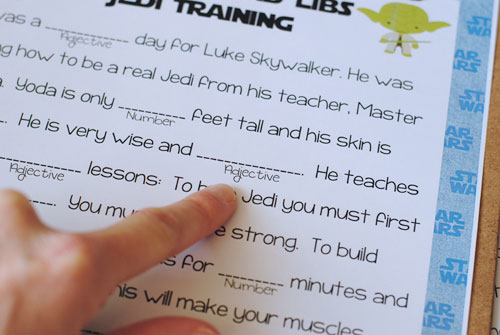 LIBS
JEDI TRAINING
was a ________ day for Luke Skywalker. He was
Adjective
how to be a real Jedi from his teacher, Master
Yoda is only ________ feet tall and his skin is
Number
He is very wise and ________. He teaches
Adjective
Adjective
lessons: To Jedi you must first
You strong. To build
for ________ minutes and
Number
his will make your muscles
STAR
WARS
STAR
WARS
STAR
WARS
STAR
WARS